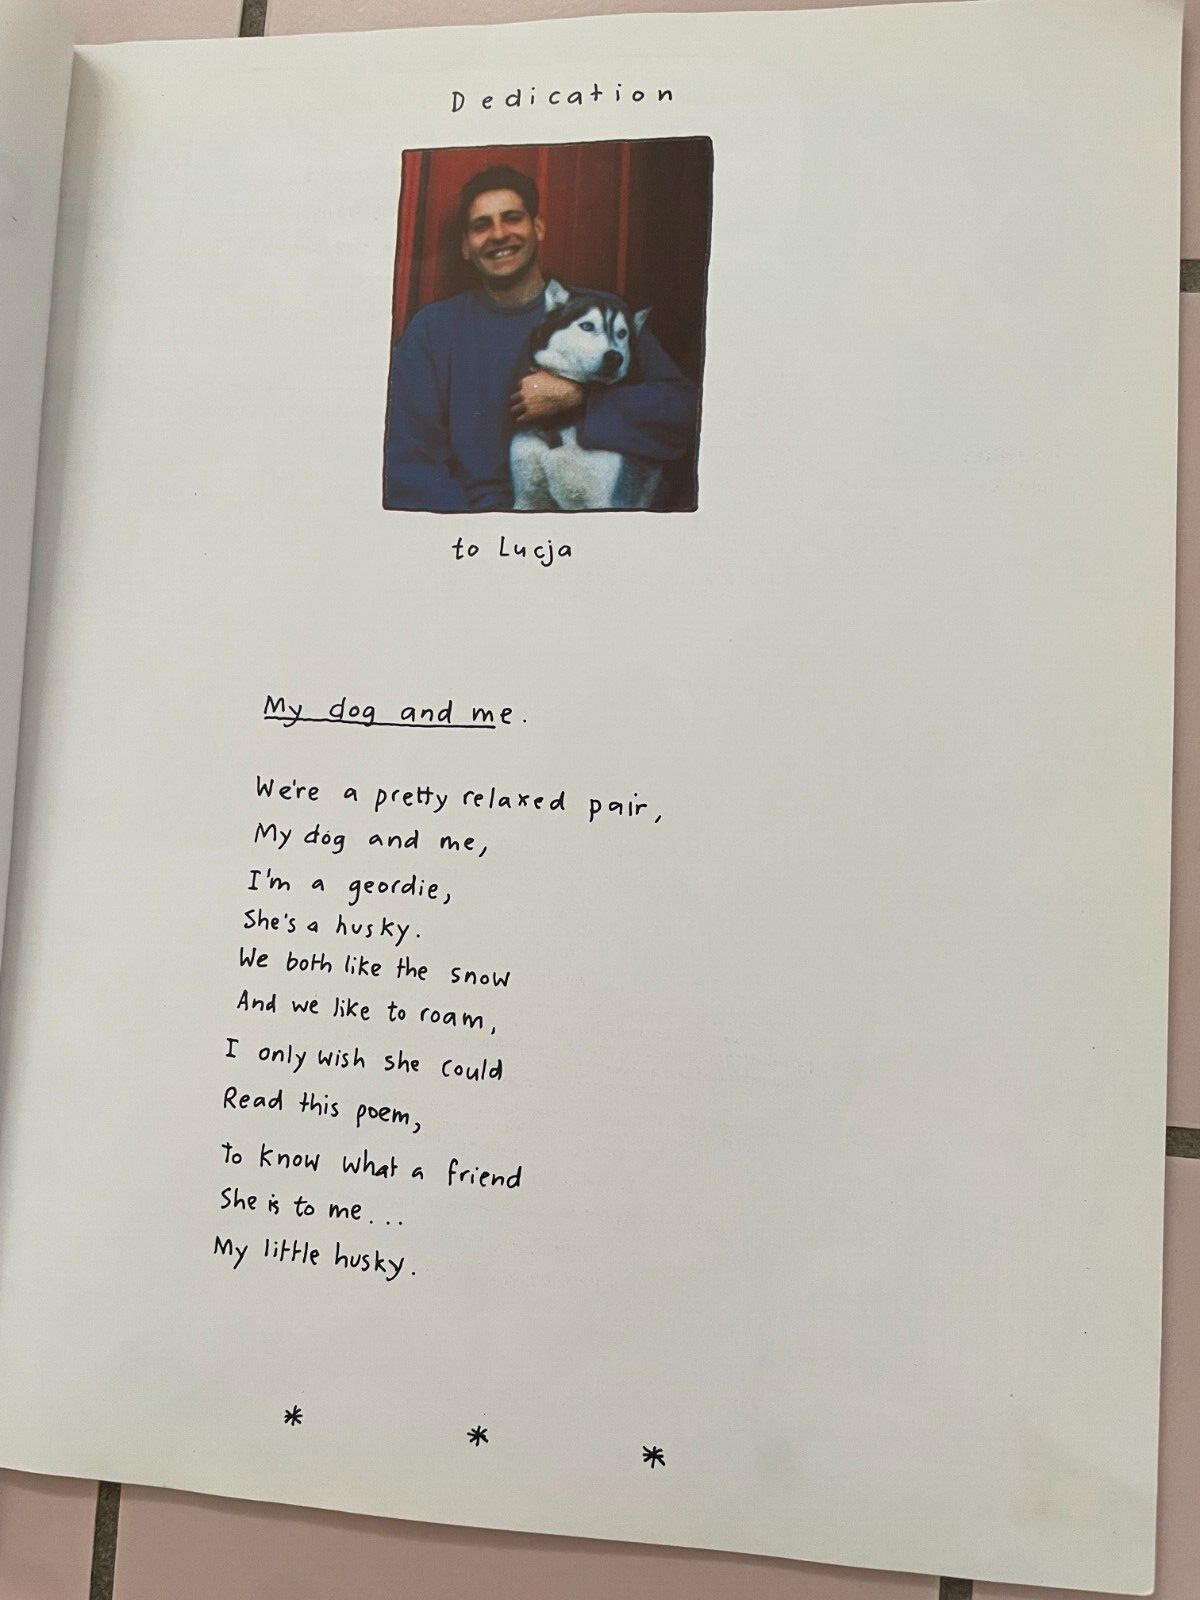 Dedication
to Lucja
My dog and me.
We're a pretty relaxed pair,
My dog and me,
I'm a geordie,
She's a husky.
We both like the snow
And we like to roam,
I only wish she could
Read this poem,
To know what a friend
She is to me...
My little husky.
* * *